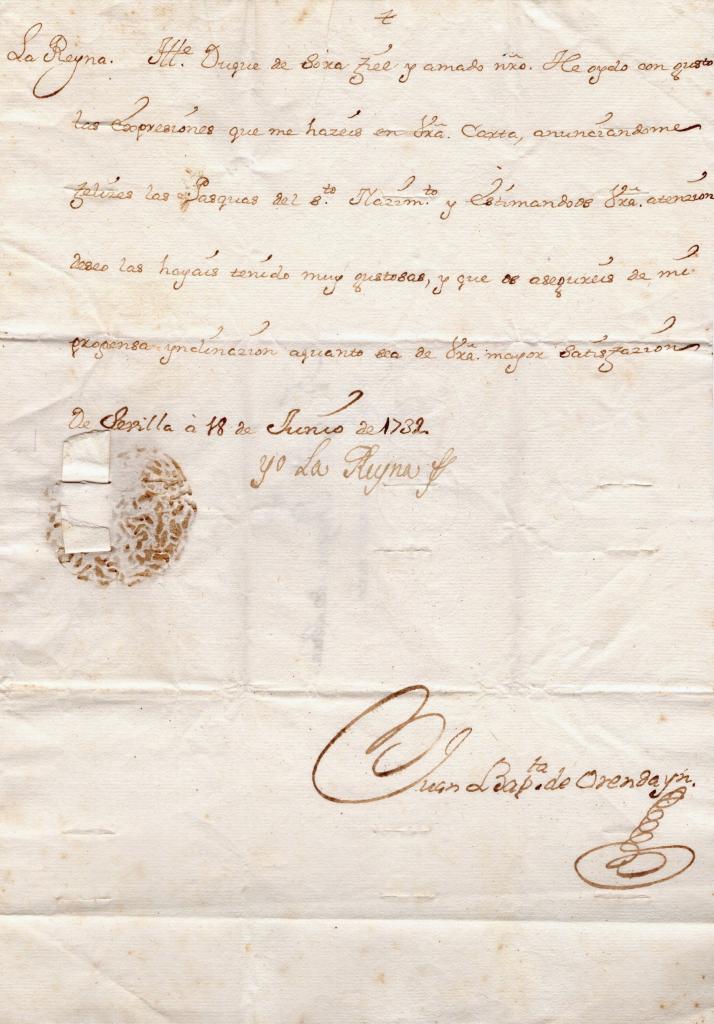 La Reyna. Ill.e Duque de Sora fiel y amado nro. He oydo con gusto
las expresiones que me hazeis en Vra. Carta, anunciandome
felizes las Pasquas del s.to Nazim.to y estimandoos Vra. atenzion
deseo las hayais tenido muy gustosas, y que os asegureis de mi
propensa ynclinazion aquanto sea de Vra. mayor satisfazion
De Sevilla à 18 de Junio de 1732.
yo La Reyna
Juan Bap.ta de Orendayn.